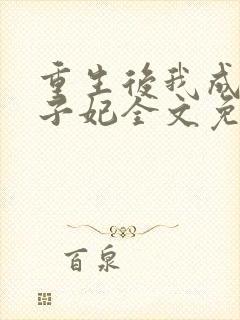 重生後我成
子妃全文免
百泉